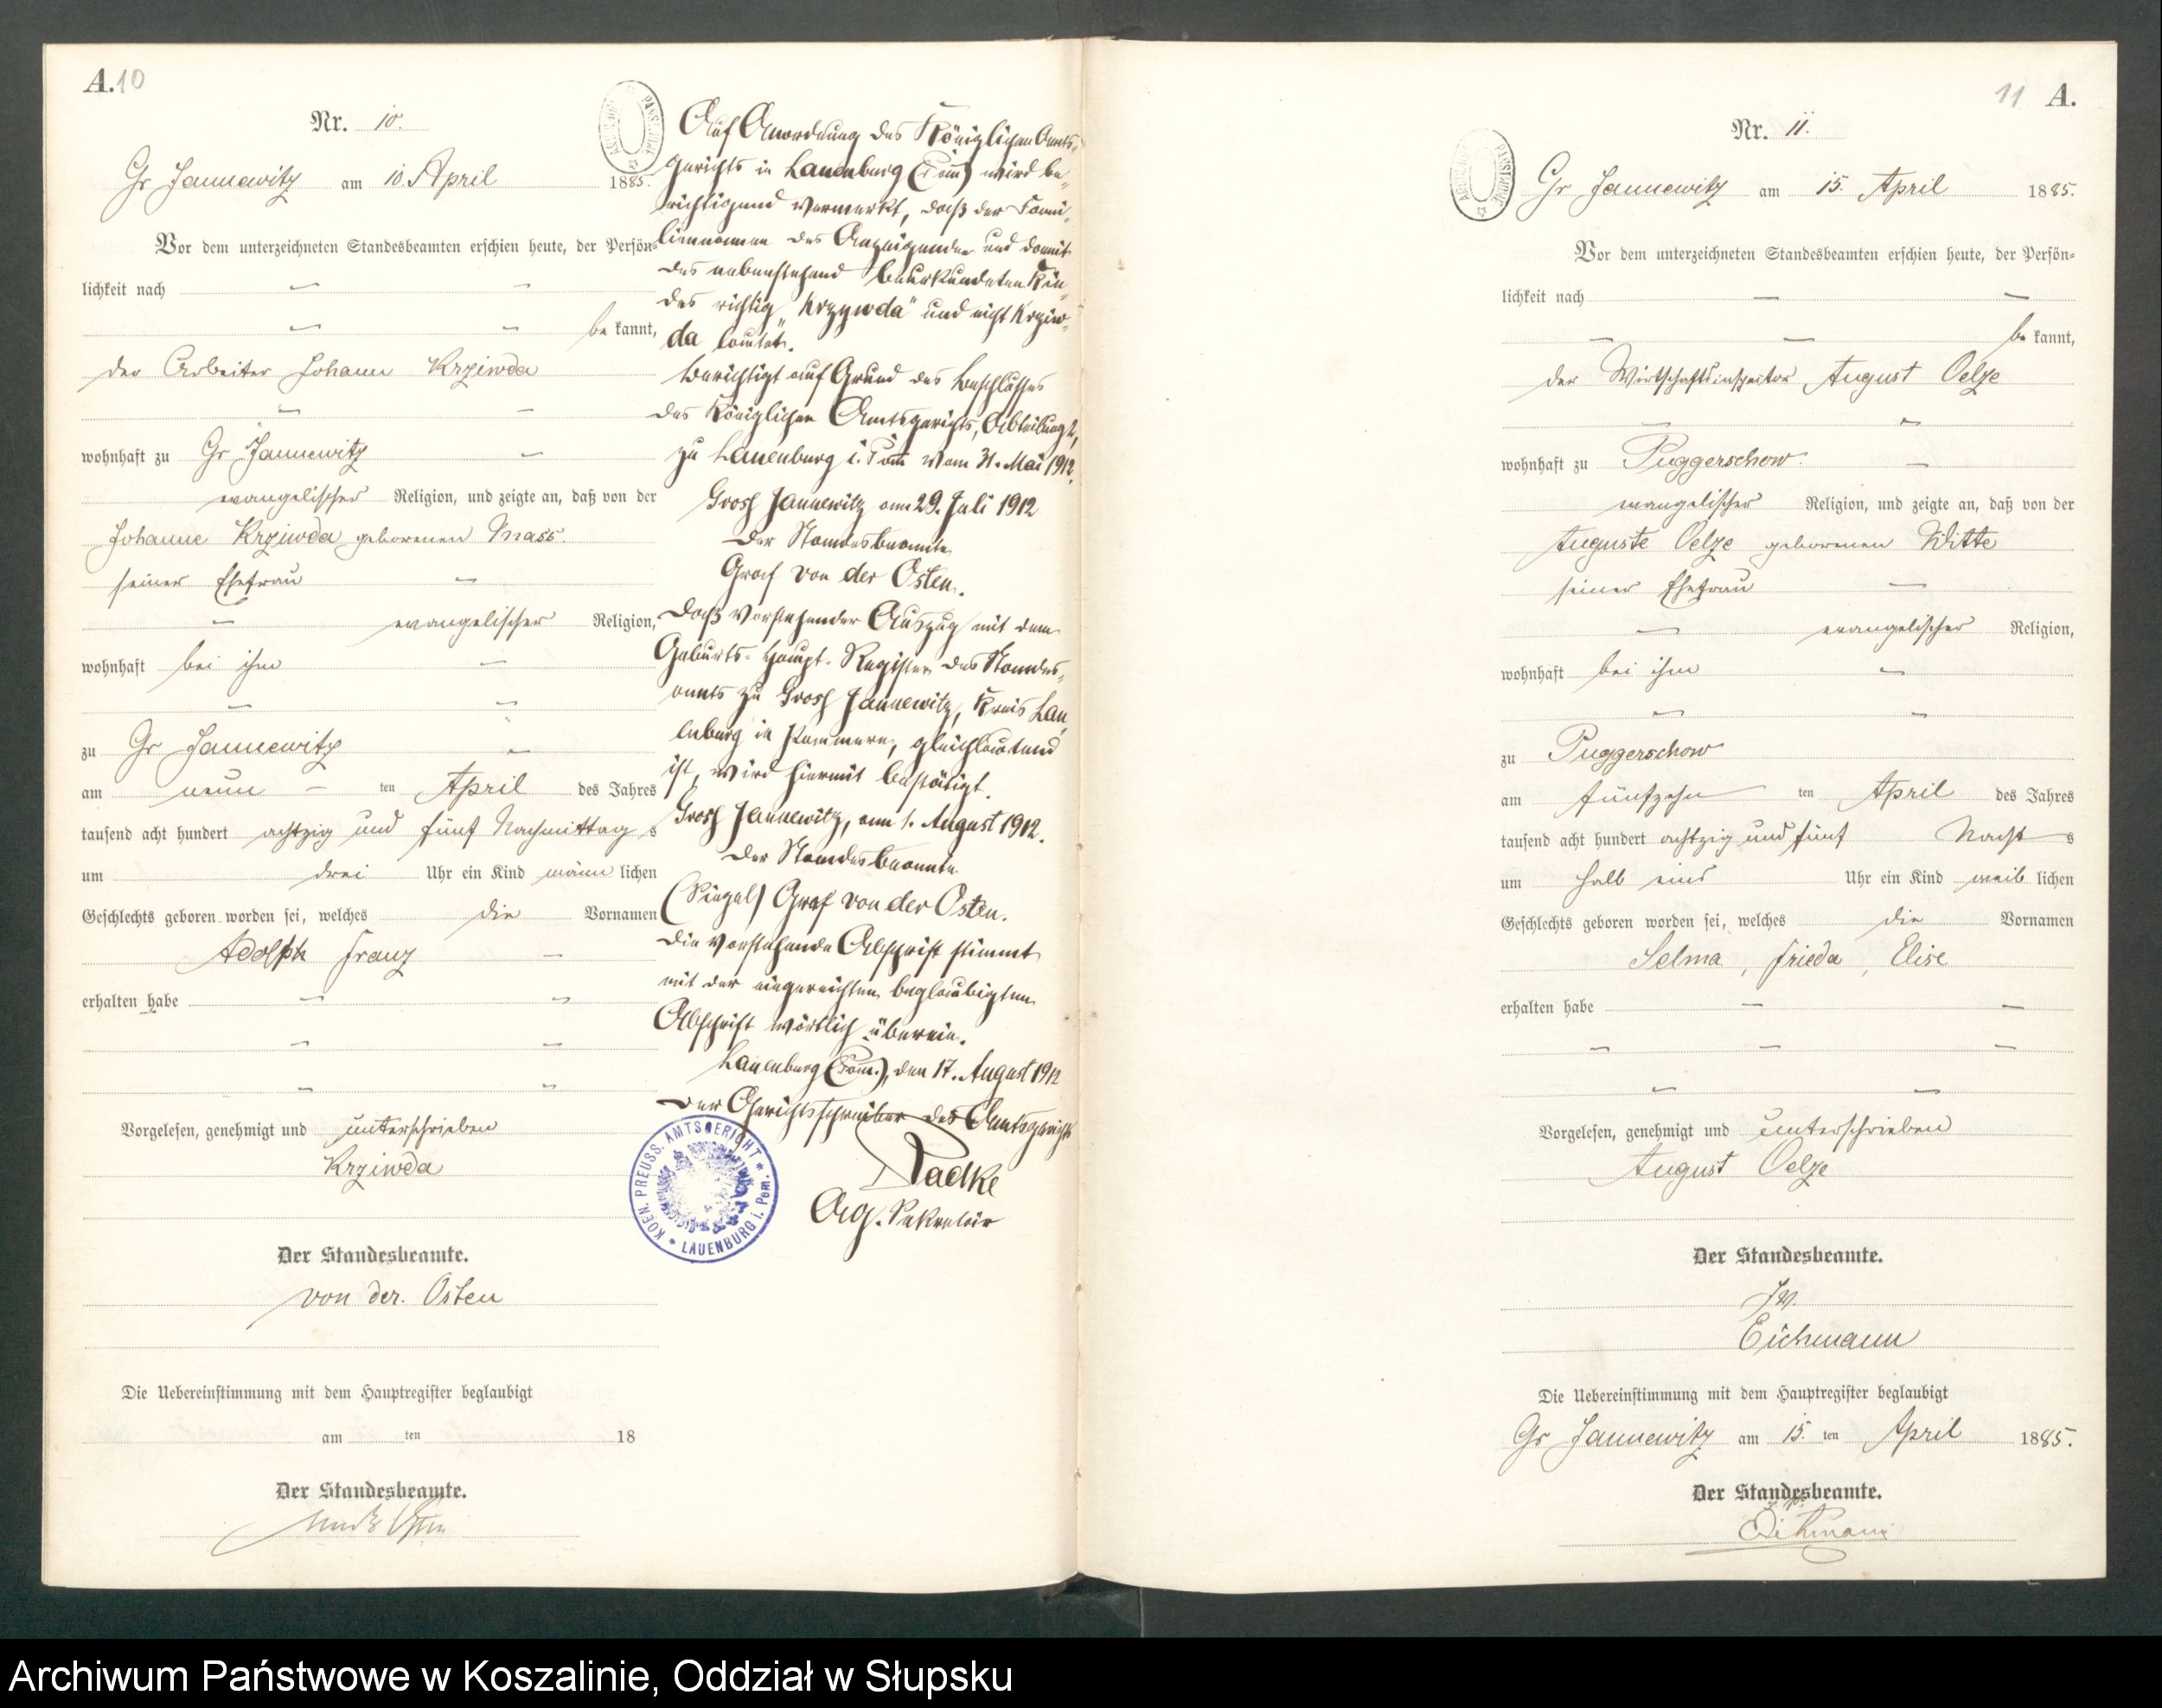 A. 10
Nr. 10.
Gr Jannewitz am 10. April 1885.
Vor dem unterzeichneten Standesbeamten erschien heute, der Persön=
lichkeit nach
be kannt,
der Arbeiter Johann Krziwda
wohnhaft zu Gr Jannewitz
evangelischer Religion, und zeigte an, daß von der
Johanne Krziwda geborenen Mass.
seiner Ehefrau
evangelischer Religion,
wohnhaft bei ihm
zu Gr Jannewitz
am neun ten April des Jahres
tausend acht hundert achtzig und fünf Nachmittag s
um drei Uhr ein Kind männ lichen
Geschlechts geboren worden sei, welches die Vornamen
Adolph Franz
erhalten habe
Vorgelesen, genehmigt und unterschrieben
Krziwda
Der Standesbeamte.
von der. Osten
Die Uebereinstimmung mit dem Hauptregister beglaubigt
am ten 18
Der Standesbeamte.
Auf Anordnung des Königlichen Amts=
gerichts in Lauenburg (Pom) wird be=
richtigend vermerkt, daß der Fami=
lienname des Anzeigenden und damit
des nebenstehend beurkundeten Kin=
des richtig „Krzywda" und nicht Krziw=
da lautet.
Berichtigt auf Grund des Beschlusses
des Königlichen Amtsgerichts, Abteilung 2,
zu Lauenburg i. Pom vom 31. Mai 1912.
Grosz Jannewitz am 29. Juli 1912
Der Standesbeamte
Graf von der Osten.
Daß vorstehender Auszug mit dem
Geburts-Haupt-Register des Standes=
amts zu Grosz Jannewitz, Kreis Lau=
enburg in Pommern, gleichlautend
ist, wird hiermit bestätigt.
Grosz Jannewitz, am 1. August 1912.
Der Standesbeamte
(Siegel) Graf von der Osten.
Die vorstehende Abschrift stimmt
mit der eingereichten beglaubigten
Abschrift wörtlich überein.
Lauenburg (Pom.), den 17. August 1912
Der Gerichtsschreiber des Amtsgerichts
Radke
Sekretär
KOEN. PREUSS. AMTSGERICHT * LAUENBURG i. Pom. *
11 A.
Nr. 11.
Gr Jannewitz am 15. April 1885.
Vor dem unterzeichneten Standesbeamten erschien heute, der Persön=
lichkeit nach
be kannt,
der Wirtschaftsinspektor August Oelze
wohnhaft zu Puggerschow.
evangelischer Religion, und zeigte an, daß von der
Auguste Oelze geborenen Witte
seiner Ehefrau
evangelischer Religion,
wohnhaft bei ihm
zu Puggerschow
am fünfzehn ten April des Jahres
tausend acht hundert achtzig und fünf Nacht s
um halb eins Uhr ein Kind weib lichen
Geschlechts geboren worden sei, welches die Vornamen
Selma, Frieda, Elise
erhalten habe
Vorgelesen, genehmigt und unterschrieben
August Oelze
Der Standesbeamte.
Eichmann
Die Uebereinstimmung mit dem Hauptregister beglaubigt
Gr Jannewitz am 15. ten April 1885.
Der Standesbeamte.
Eichmann
Archiwum Państwowe w Koszalinie, Oddział w Słupsku